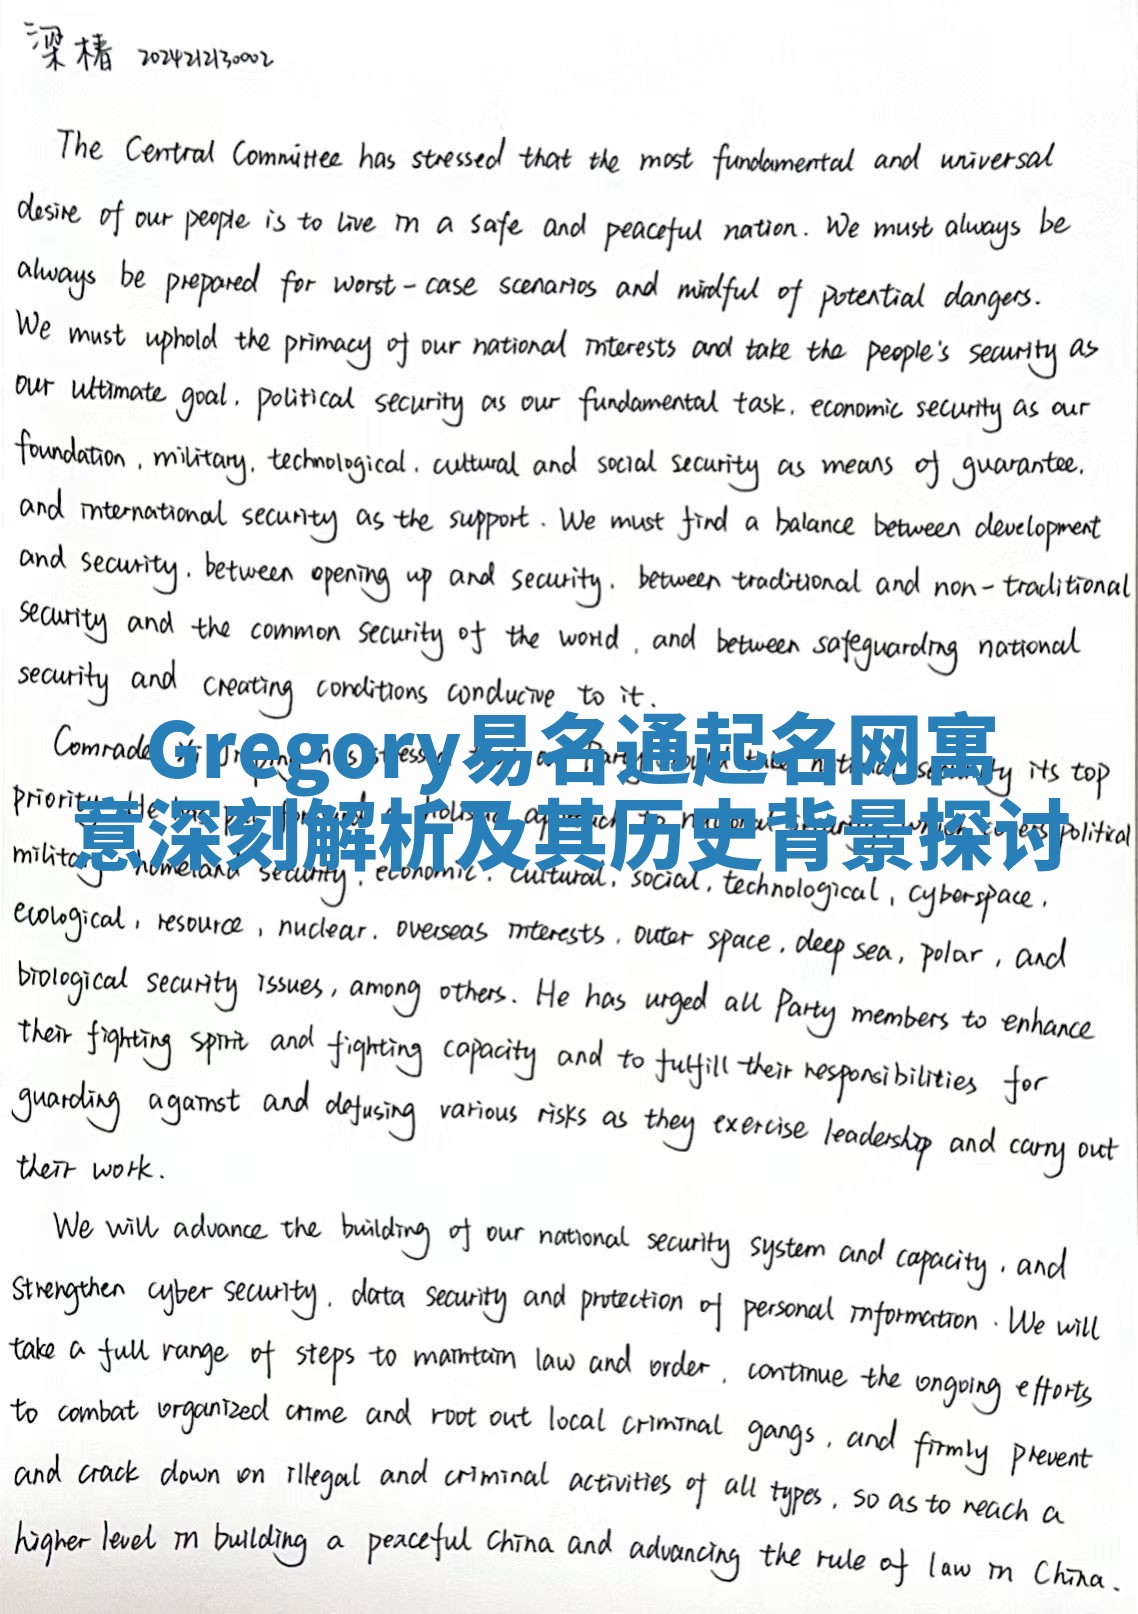 梁椿 2024212130002
The Central Committee has stressed that the most fundamental and universal
desire of our people is to live in a safe and peaceful nation. We must always be
always be prepared for worst-case scenarios and mindful of potential dangers.
We must uphold the primacy of our national interests and take the people's security as
our ultimate goal, political security as our fundamental task, economic security as our
foundation, military, technological, cultural and social security as means of guarantee,
and international security as the support. We must find a balance between development
and security, between opening up and security, between traditional and non-traditional
security and the common security of the world, and between safeguarding national
security and creating conditions conducive to it.
Comrade has stressed Party national security its top
Gregory易名通起名网寓
priority. He has put forward a holistic approach to national security, which covers political
意深刻解析及其历史背景探讨
military homeland security, economic, cultural, social, technological, cyberspace,
ecological, resource, nuclear, overseas interests, outer space, deep sea, polar, and
biological security issues, among others. He has urged all Party members to enhance
their fighting spirit and fighting capacity and to fulfill their responsibilities for
guarding against and defusing various risks as they exercise leadership and carry out
their work.
We will advance the building of our national security system and capacity, and
strengthen cyber security, data security and protection of personal information. We will
take a full range of steps to maintain law and order, continue the ongoing efforts
to combat organized crime and root out local criminal gangs, and firmly prevent
and crack down on illegal and criminal activities of all types, so as to reach a
higher level in building a peaceful China and advancing the rule of law in China.